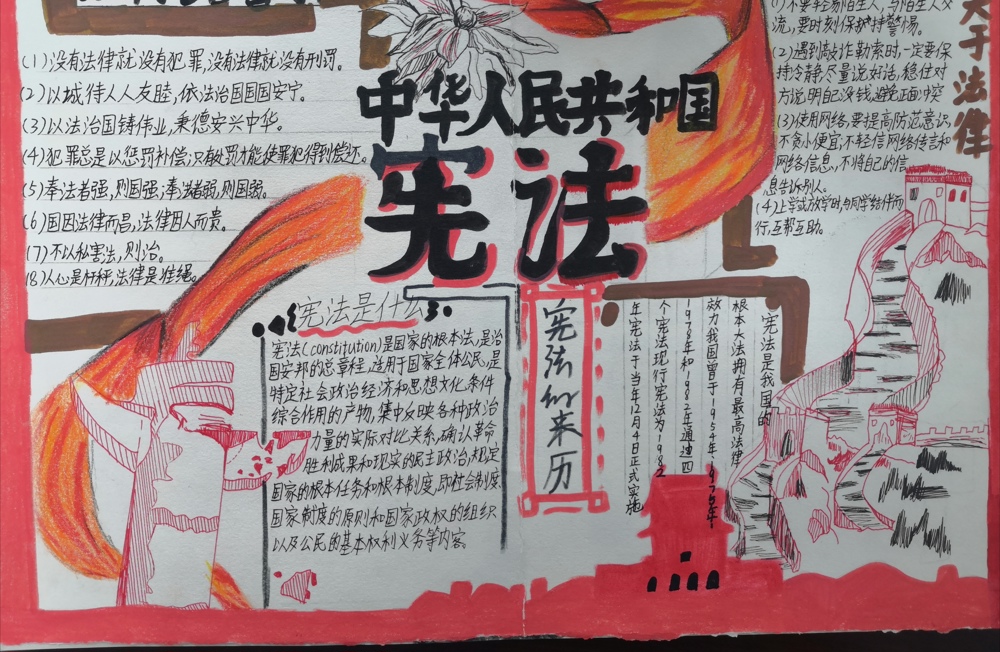 (1)没有法律就没有犯罪,没有法律就没有刑罚。
(2)以城待人人友睦,依法治国国国安宁。
(3)以法治国铸伟业,秉德安兴中华。
(4)犯罪总是以惩罚补偿;只有处罚才能使罪犯得到偿还。
(5)奉法者强,则国强;奉法者弱,则国弱。
(6)国因法律而昌,法律因人而贵。
(7)不以私害法,则治。
(8)人心是杆秤,法律是准绳。
中华人民共和国
宪法
宪法是什么
宪法(constitution)是国家的根本法,是治
国安邦的总章程,适用于国家全体公民,是
特定社会政治经济和思想文化条件
综合作用的产物,集中反映各种政治
力量的实际对比关系,确认革命
胜利成果和现实的民主政治,规定
国家的根本任务和根本制度,即社会制度、
国家制度的原则和国家政权的组织
以及公民的基本权利义务等内容。
宪法的来历
宪法是我国的
根本大法拥有最高法律
效力我国曾于1954年、1975年、
1978年和1982年通过四
个宪法现行宪法为1982
年宪法于当年12月4日正式实施
关于法律
(1)不要轻易陌生人,与陌生人交
流,要时刻保护持警惕。
(2)遇到敲诈勒索时,一定要保
持冷静,尽量说好话,稳住对
方说明自己没钱,避免正面冲突
(3)使用网络,要提高防范意识,
不贪小便宜,不轻信网络传言和
网络信息,不将自己的信
息告诉别人。
(4)上学或放学时,与同学结伴而
行,互帮互助。